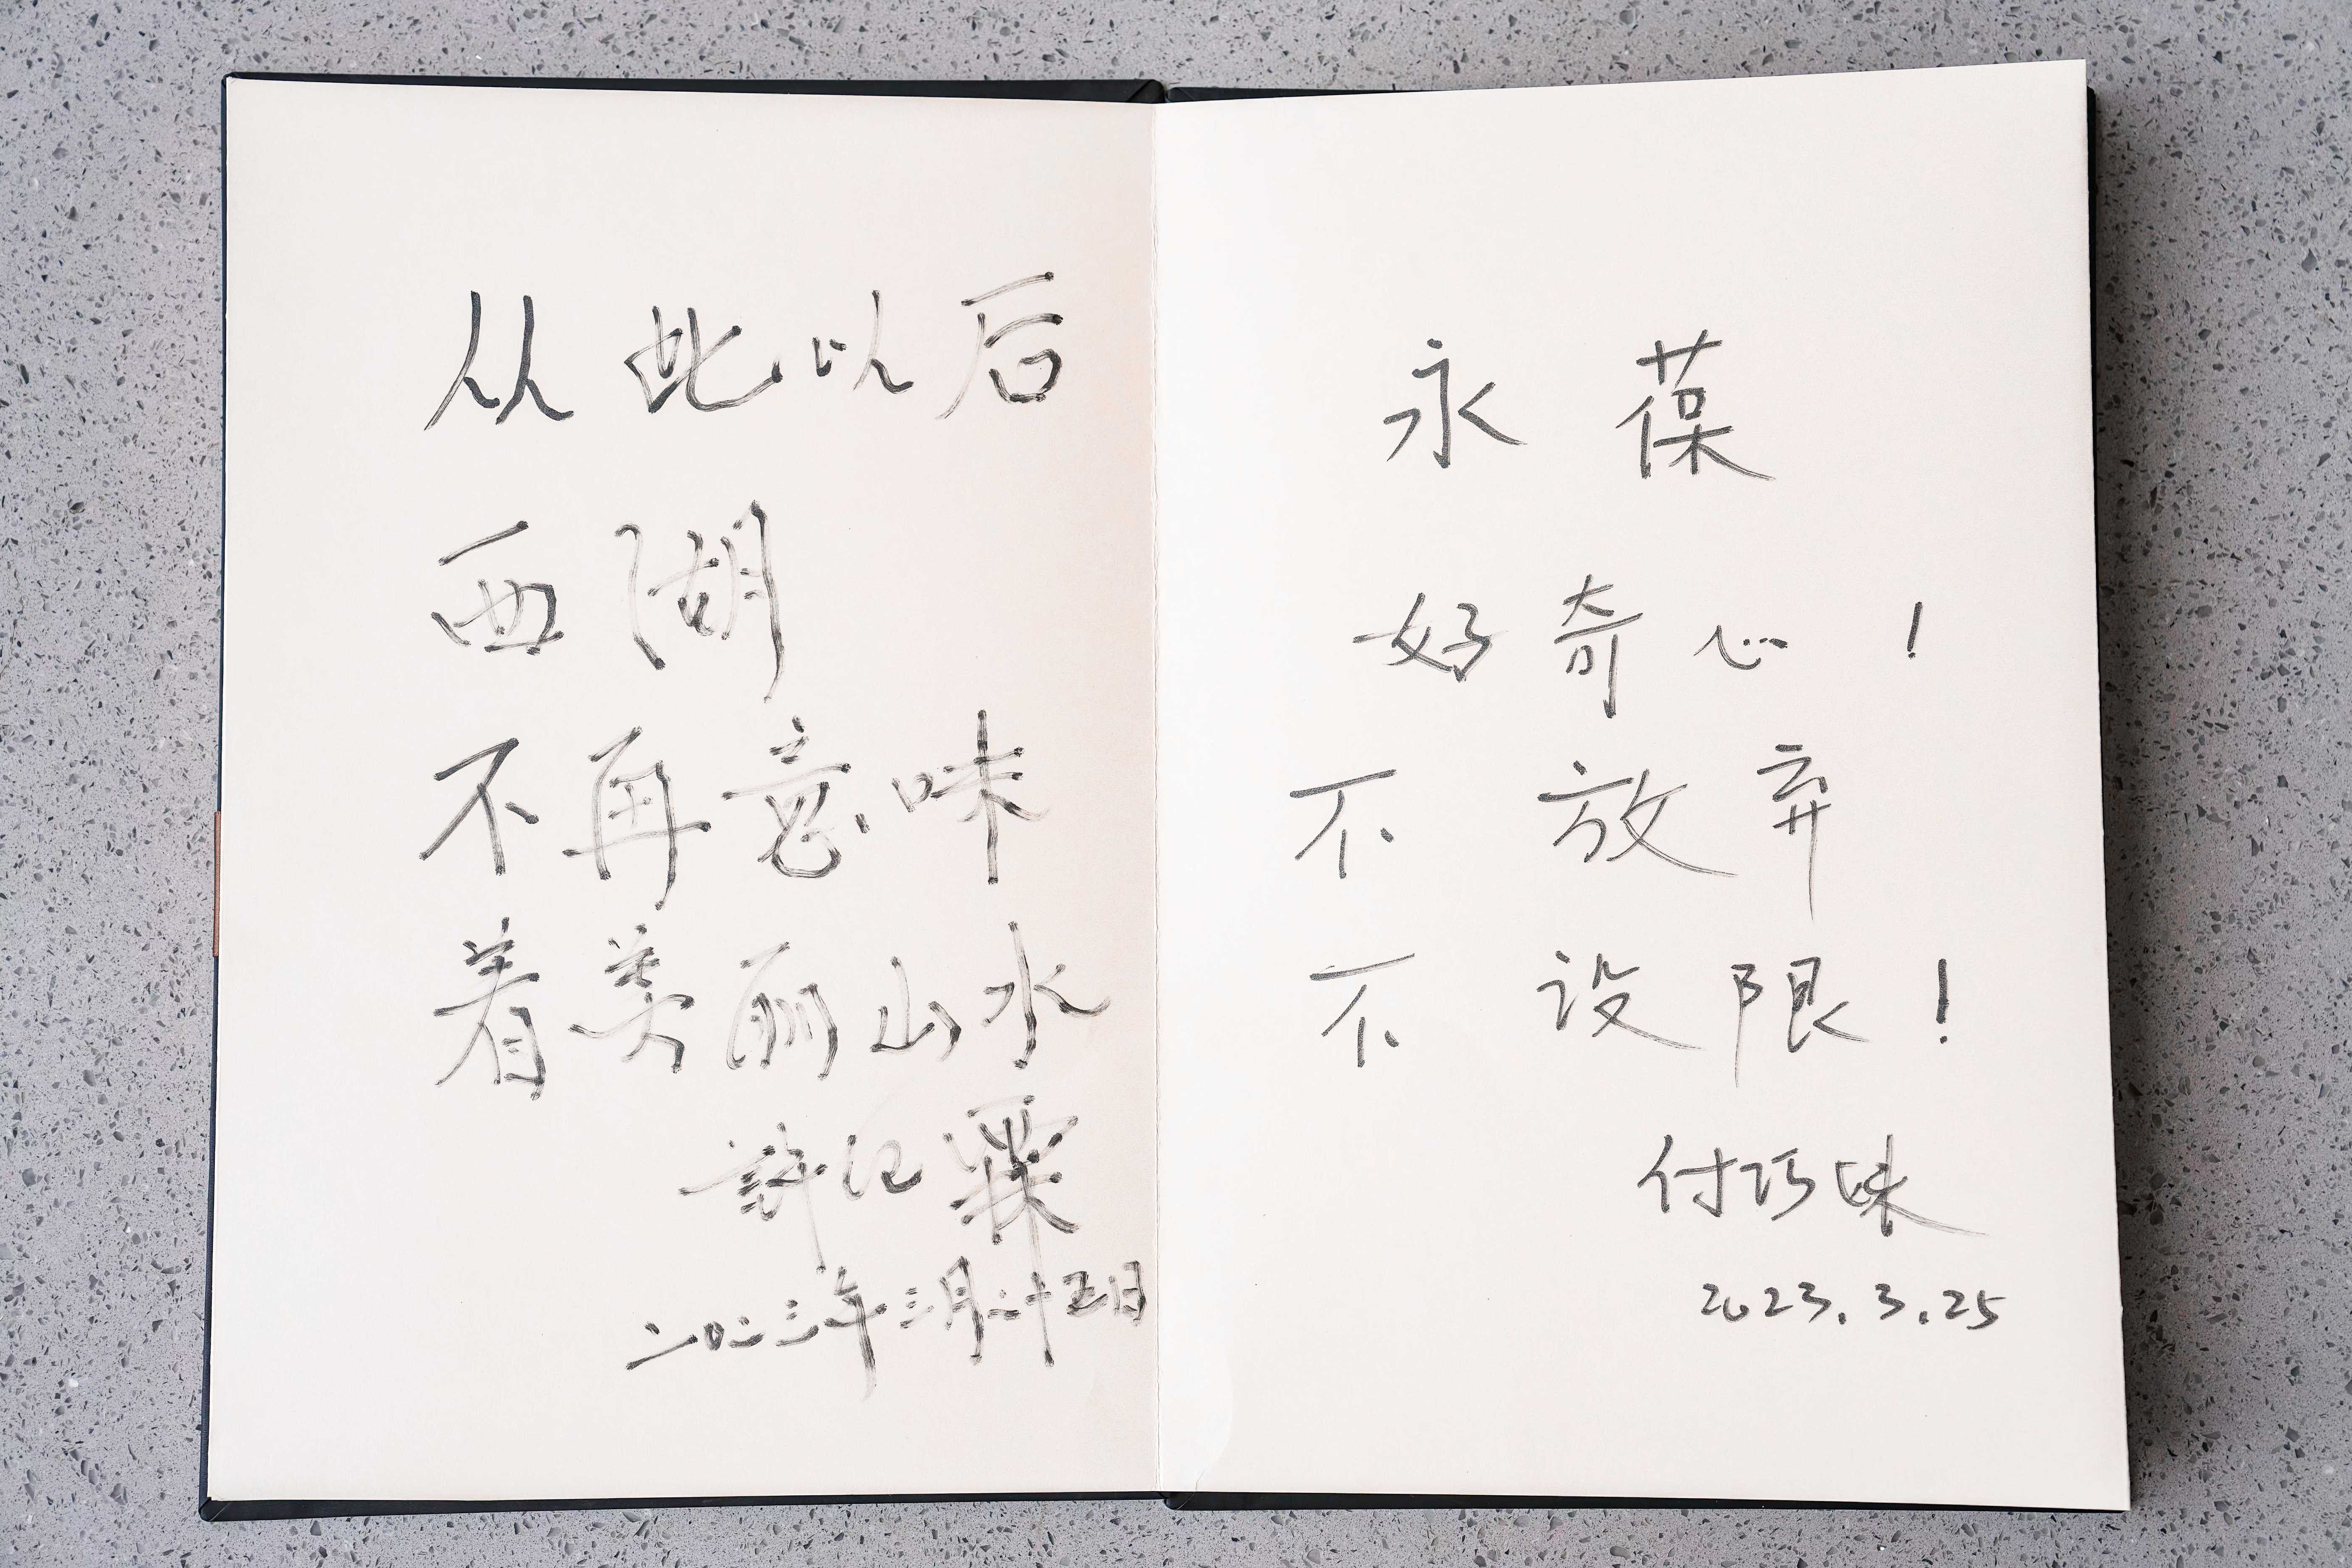 从此以后
西湖
不再意味
着美丽山水
許记霖
二〇二三年三月二十五日
永葆
好奇心！
不放弃
不设限！
付巧妹
2023.3.25